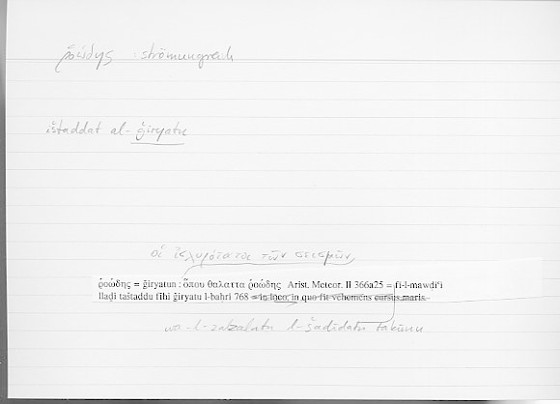 ῥοώδης : strömungreich
ištaddat al- ǧiryatu
οἱ ἰσχυρότατοι τῶν σεισμῶν,
ῥοώδης = ǧiryatun : ὅπου θαλαττα ῥοώδης Arist. Meteor. II 366a25 = fī-l-mawḍiʿi
llaḏī taštaddu fīhi ǧiryatu l-baḥri 768 = in loco, in quo fit vehemens cursus maris.
wa-l-zalzalatu l-šadīdatu takūnu